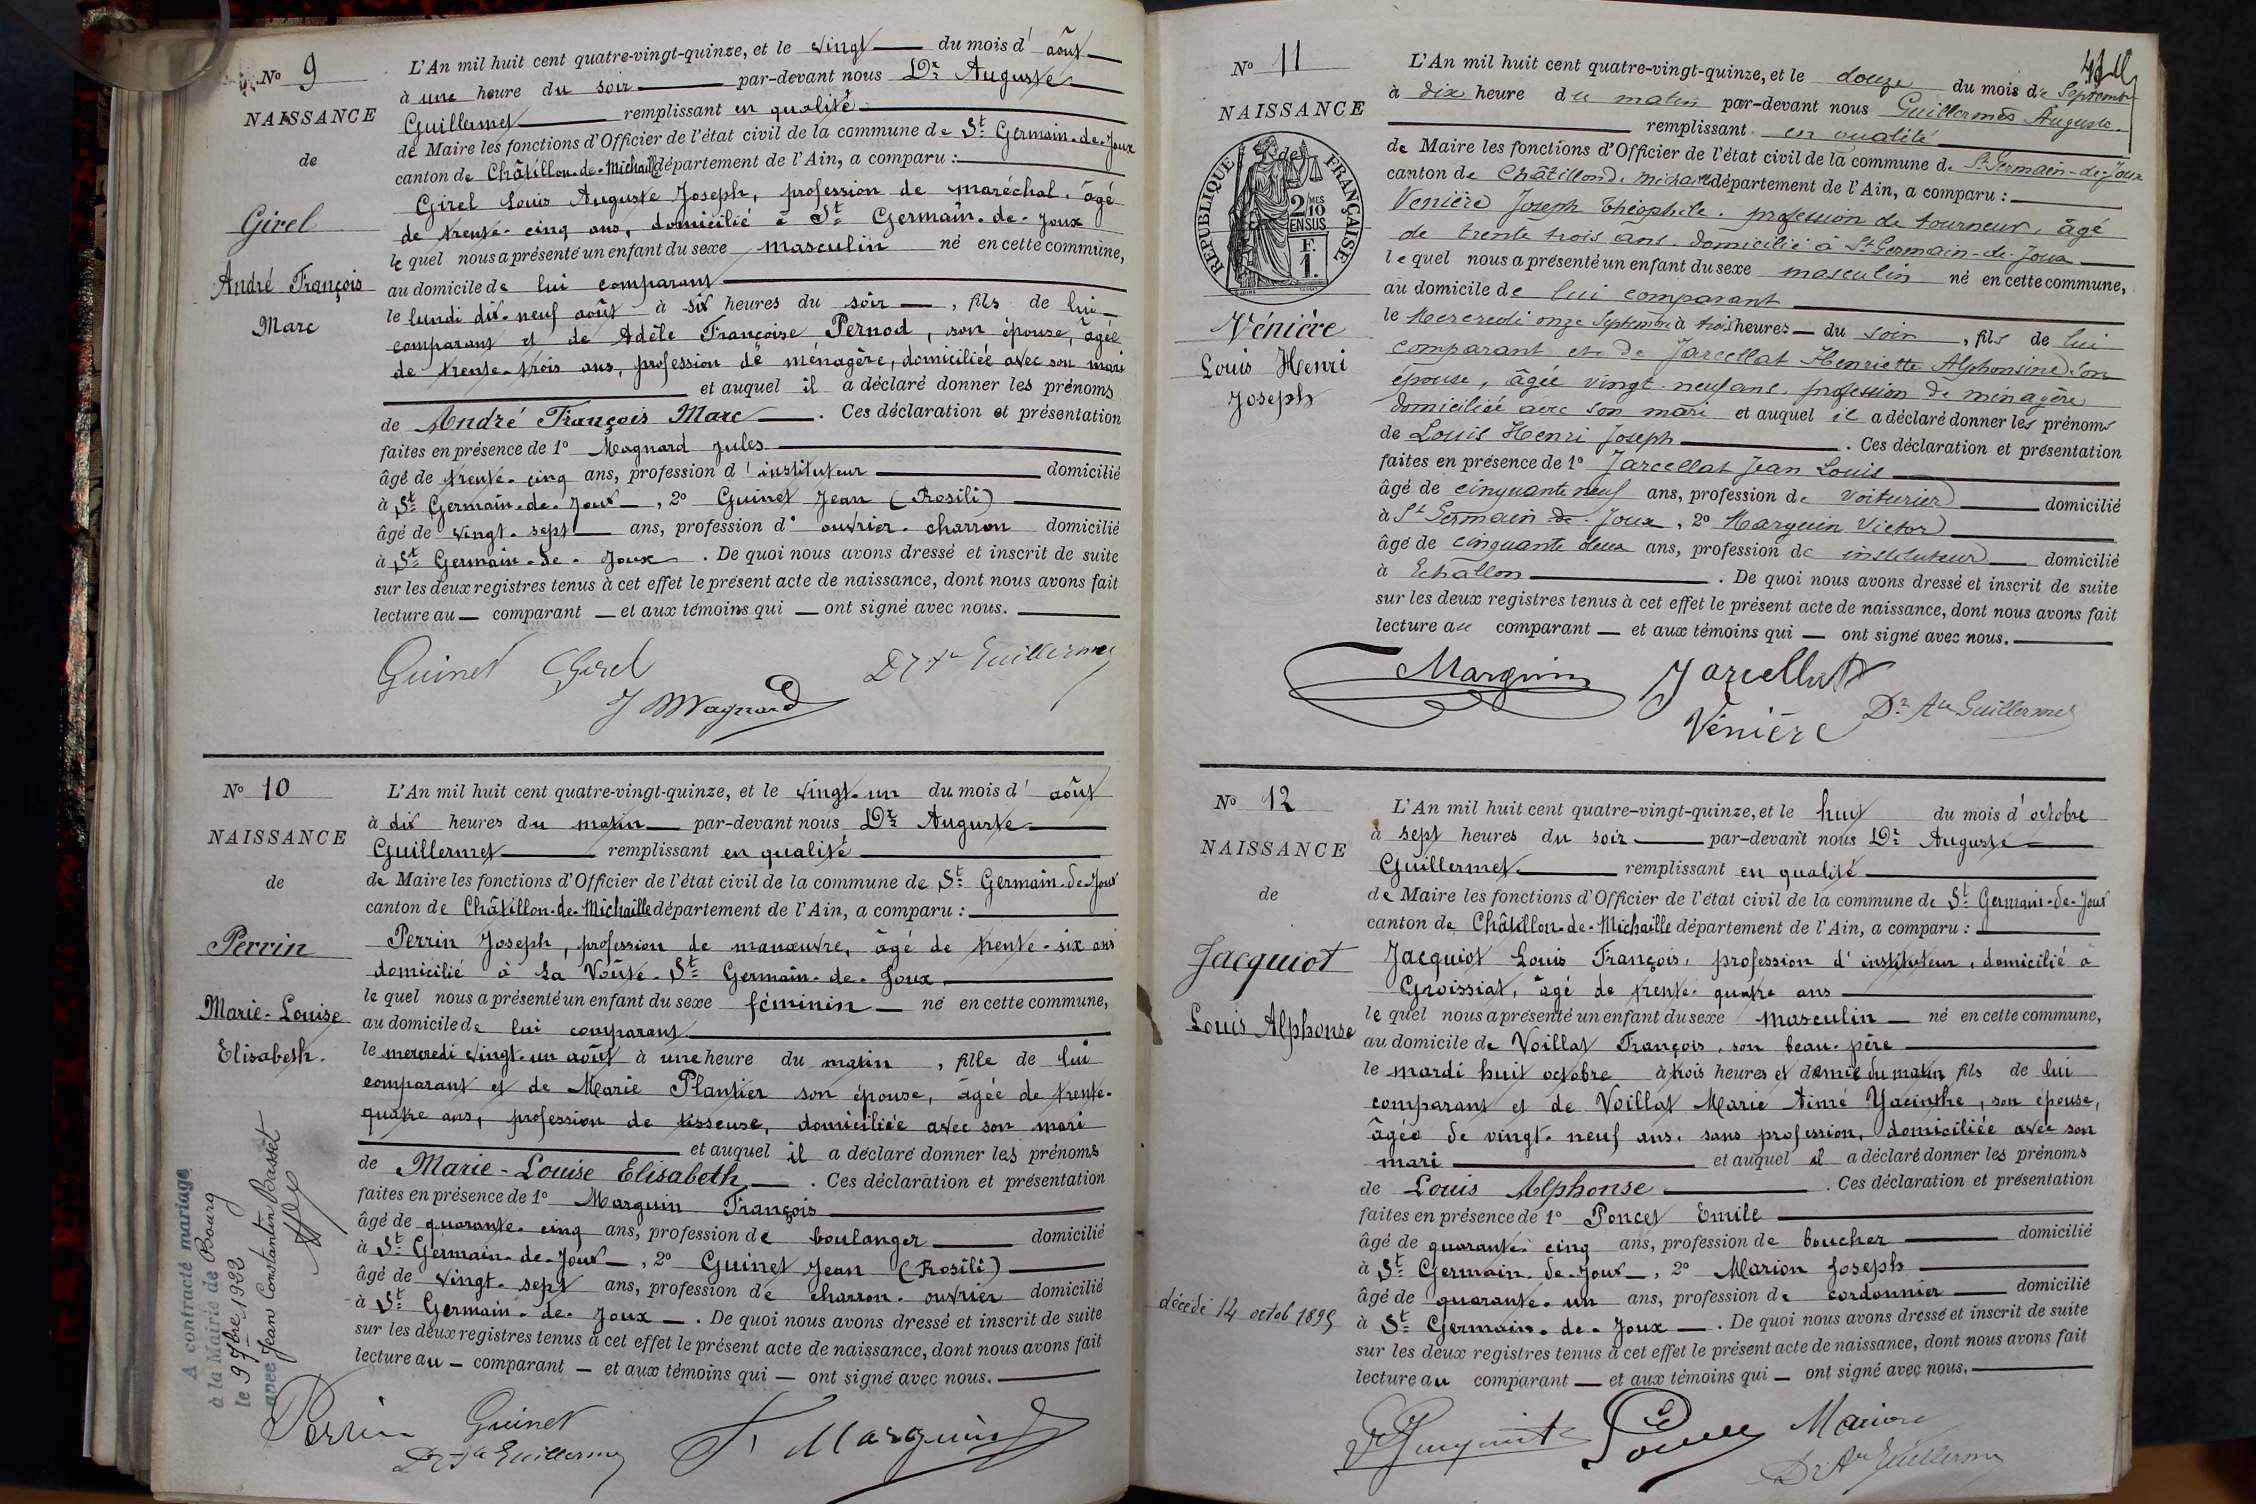 N° 9
NAISSANCE
de
Girel
André François
Marc
L'An mil huit cent quatre-vingt-quinze, et le vingt du mois d' août
à une heure du soir par-devant nous Dr Auguste
Guillermet remplissant en qualité
de Maire les fonctions d'Officier de l'état civil de la commune de St Germain-de-Joux
canton de Châtillon-de-Michaille département de l'Ain, a comparu :
Girel Louis Auguste Joseph, profession de maréchal, âgé
de trente-cinq ans, domicilié à St Germain-de-Joux
le quel nous a présenté un enfant du sexe masculin né en cette commune,
au domicile de lui comparant
le lundi dix-neuf août à six heures du soir, fils de lui
comparant et de Adèle Françoise Pernod, son épouse, âgée
de trente-trois ans, profession de ménagère, domiciliée avec son mari
et auquel il a déclaré donner les prénoms
de André François Marc. Ces déclaration et présentation
faites en présence de 1° Magnard Jules
âgé de trente-cinq ans, profession d'instituteur domicilié
à St Germain-de-Joux, 2° Guinet Jean (Rosili)
âgé de vingt-sept ans, profession d' ouvrier-charron domicilié
à St Germain-de-Joux. De quoi nous avons dressé et inscrit de suite
sur les deux registres tenus à cet effet le présent acte de naissance, dont nous avons fait
lecture au comparant et aux témoins qui ont signé avec nous.
Guinet Girel Dr Ate Guillermet
J Magnard
N° 10
NAISSANCE
de
Perrin
Marie-Louise
Elisabeth.
L'An mil huit cent quatre-vingt-quinze, et le vingt-un du mois d' août
à dix heures du matin par-devant nous Dr Auguste
Guillermet remplissant en qualité
de Maire les fonctions d'Officier de l'état civil de la commune de St Germain-de-Joux
canton de Châtillon-de-Michaille département de l'Ain, a comparu :
Perrin Joseph, profession de manœuvre, âgé de trente-six ans
domicilié à la Voûte-St Germain-de-Joux
le quel nous a présenté un enfant du sexe féminin né en cette commune,
au domicile de lui comparant
le mercredi vingt-un août à une heure du matin, fille de lui
comparant et de Marie Plantier son épouse, âgée de trente-
quatre ans, profession de tisseuse, domiciliée avec son mari
et auquel il a déclaré donner les prénoms
de Marie-Louise Elisabeth. Ces déclaration et présentation
faites en présence de 1° Marguin François
âgé de quarante-cinq ans, profession de boulanger domicilié
à St Germain-de-Joux, 2° Guinet Jean (Rosili)
âgé de vingt-sept ans, profession de charron-ouvrier domicilié
à St Germain-de-Joux. De quoi nous avons dressé et inscrit de suite
sur les deux registres tenus à cet effet le présent acte de naissance, dont nous avons fait
lecture au comparant et aux témoins qui ont signé avec nous.
A contracté mariage
à la Mairie de Bourg
le 9 7bre 1922
avec Jean Constantin Basset
Perrin Guinet F. Marguin
Dr Ate Guillermet
N° 11
NAISSANCE
de
RÉPUBLIQUE FRANÇAISE
2/10 MES
EN SUS
F.
1.
Vénière
Louis Henri
Joseph
L'An mil huit cent quatre-vingt-quinze, et le douze du mois de Septembre
à dix heure du matin par-devant nous Guillermet Auguste
remplissant en qualité
de Maire les fonctions d'Officier de l'état civil de la commune de St Germain-de-Joux
canton de Châtillon de Michaille département de l'Ain, a comparu :
Vénière Joseph Théophile. profession de tourneur, âgé
de trente trois ans. domicilié à St Germain-de-Joux
le quel nous a présenté un enfant du sexe masculin né en cette commune,
au domicile de lui comparant
le Mercredi onze Septembre à trois heures du soir, fils de lui
comparant et de Jarcellat Henriette Alphonsine son
épouse, âgée vingt-neuf ans. profession de ménagère
domiciliée avec son mari et auquel il a déclaré donner les prénoms
de Louis Henri Joseph. Ces déclaration et présentation
faites en présence de 1° Jarcellat Jean Louis
âgé de cinquante neuf ans, profession de voiturier domicilié
à St Germain-de-Joux, 2° Marguin Victor
âgé de cinquante deux ans, profession de instituteur domicilié
à Echallon. De quoi nous avons dressé et inscrit de suite
sur les deux registres tenus à cet effet le présent acte de naissance, dont nous avons fait
lecture au comparant et aux témoins qui ont signé avec nous.
Marguin Jarcellat
Vénière Dr Ate Guillermet
N° 12
NAISSANCE
de
Jacquiot
Louis Alphonse
décédé 14 octob 1895
L'An mil huit cent quatre-vingt-quinze, et le huit du mois d'octobre
à sept heures du soir par-devant nous Dr Auguste
Guillermet remplissant en qualité
de Maire les fonctions d'Officier de l'état civil de la commune de St Germain-de-Joux
canton de Châtillon-de-Michaille département de l'Ain, a comparu :
Jacquiot Louis François, profession d'instituteur, domicilié à
Groissiat, âgé de trente-quatre ans
le quel nous a présenté un enfant du sexe masculin né en cette commune,
au domicile de Voillat François, son beau-père
le mardi huit octobre à trois heures et demie du matin fils de lui
comparant et de Voillat Marie Aimé Yacinthe, son épouse,
âgée de vingt-neuf ans, sans profession, domiciliée avec son
mari et auquel il a déclaré donner les prénoms
de Louis Alphonse. Ces déclaration et présentation
faites en présence de 1° Poncet Emile
âgé de quarante-cinq ans, profession de boucher domicilié
à St Germain-de-Joux, 2° Marion Joseph
âgé de quarante-un ans, profession de cordonnier domicilié
à St Germain-de-Joux. De quoi nous avons dressé et inscrit de suite
sur les deux registres tenus à cet effet le présent acte de naissance, dont nous avons fait
lecture au comparant et aux témoins qui ont signé avec nous.
Jacquiot Poncet Marion
Dr Ate Guillermet